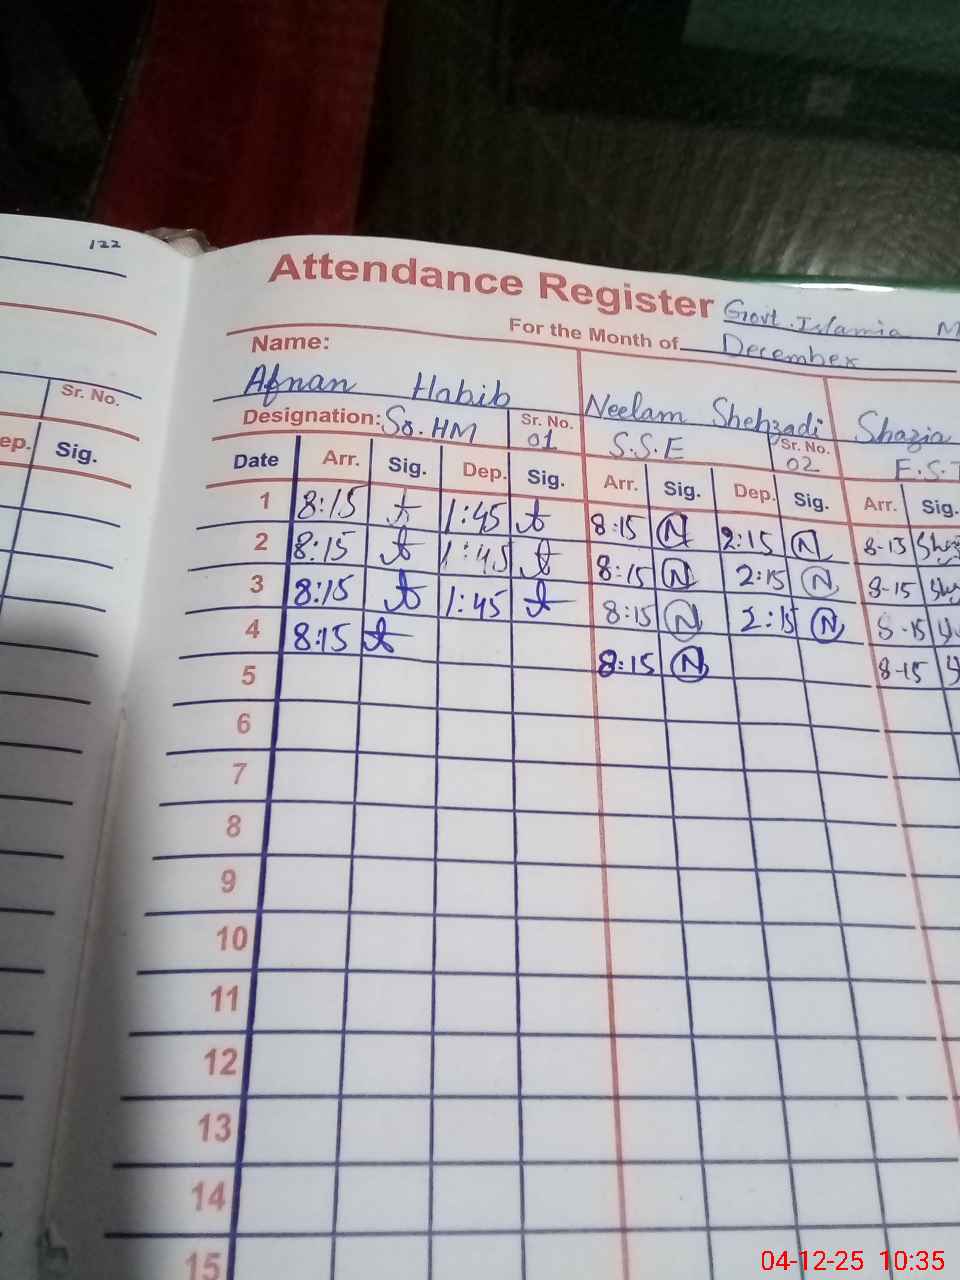 122
Attendance Register Govt. Islamia M
For the Month of December
Name:
Afnan Habib Neelam Shehzadi Shazia
Designation: So. HM Sr. No. 01 S.S.E Sr. No. 02 E.S.T
Sr. No.
ep. Sig.
Date Arr. Sig. Dep. Sig. Arr. Sig. Dep. Sig. Arr. Sig.
1 8:15 1:45 8:15 N 2:15 N 8-15
2 8:15 1:45 8:15 N 2:15 N 8-15
3 8:15 1:45 8:15 N 2:15 N 8-15
4 8:15 8:15 N 8-15
5
6
7
8
9
10
11
12
13
14
15
04-12-25 10:35